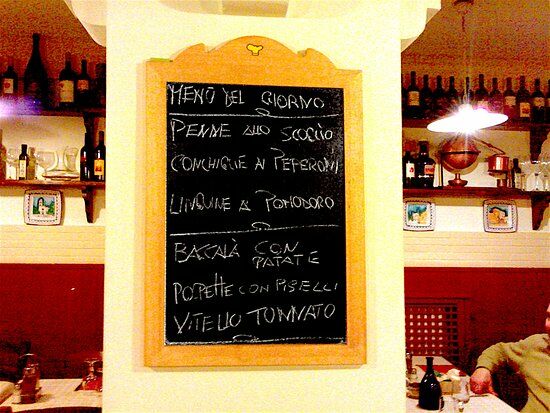 MENÙ DEL GIORNO
PENNE ALLO SCOGLIO
CONCHIGLIE AI PEPERONI
LINGUINE AL POMODORO
BACCALÀ CON
PATATE
POLPETTE CON PISELLI
VITELLO TONNATO